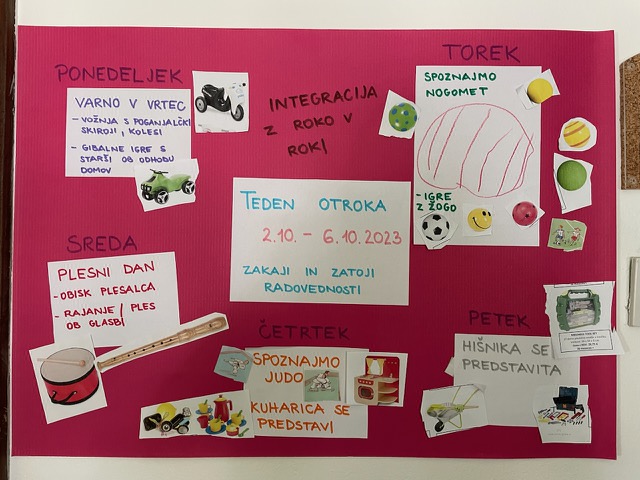 PONEDELJEK
VARNO V VRTEC
- VOŽNJA S POGANJALČKI
SKIROJI, KOLESI
- GIBALNE IGRE S
STARŠI OB ODHODU
DOMOV
INTEGRACIJA
Z ROKO V
ROKI
TOREK
SPOZNAJMO
NOGOMET
- IGRE
Z ŽOGO
TEDEN OTROKA
2.10. - 6.10.2023
ZAKAJI IN ZATOJI
RADOVEDNOSTI
SREDA
PLESNI DAN
- OBISK PLESALCA
- RAJANJE / PLES
OB GLASBI
ČETRTEK
SPOZNAJMO
JUDO
KUHARICA SE
PREDSTAVI
PETEK
HIŠNIKA SE
PREDSTAVITA